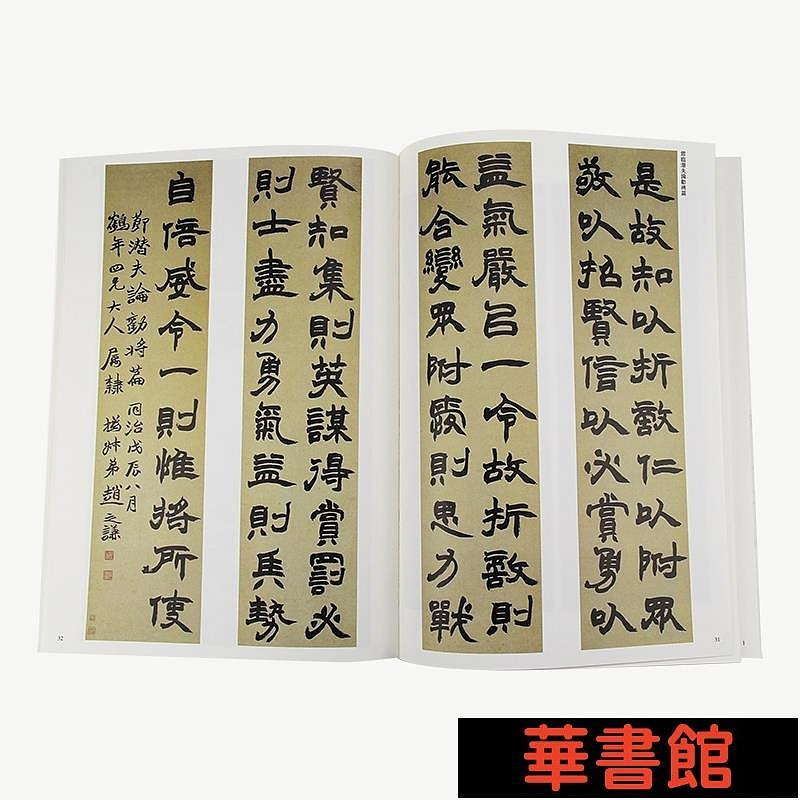 是故知以折敵仁以附眾
敬以招賢信以必賞勇以
益氣嚴㠯一令故折敵則
能合變眾附愛則思力戰
31
賢知集則英謀得賞罰必
則士盡力勇氣益則兵勢
自倍威令一則惟將所使
節潛夫論勸將篇 同治戊辰八月
鶴年四兄大人屬隸 撝叔弟趙之謙
32
華書館